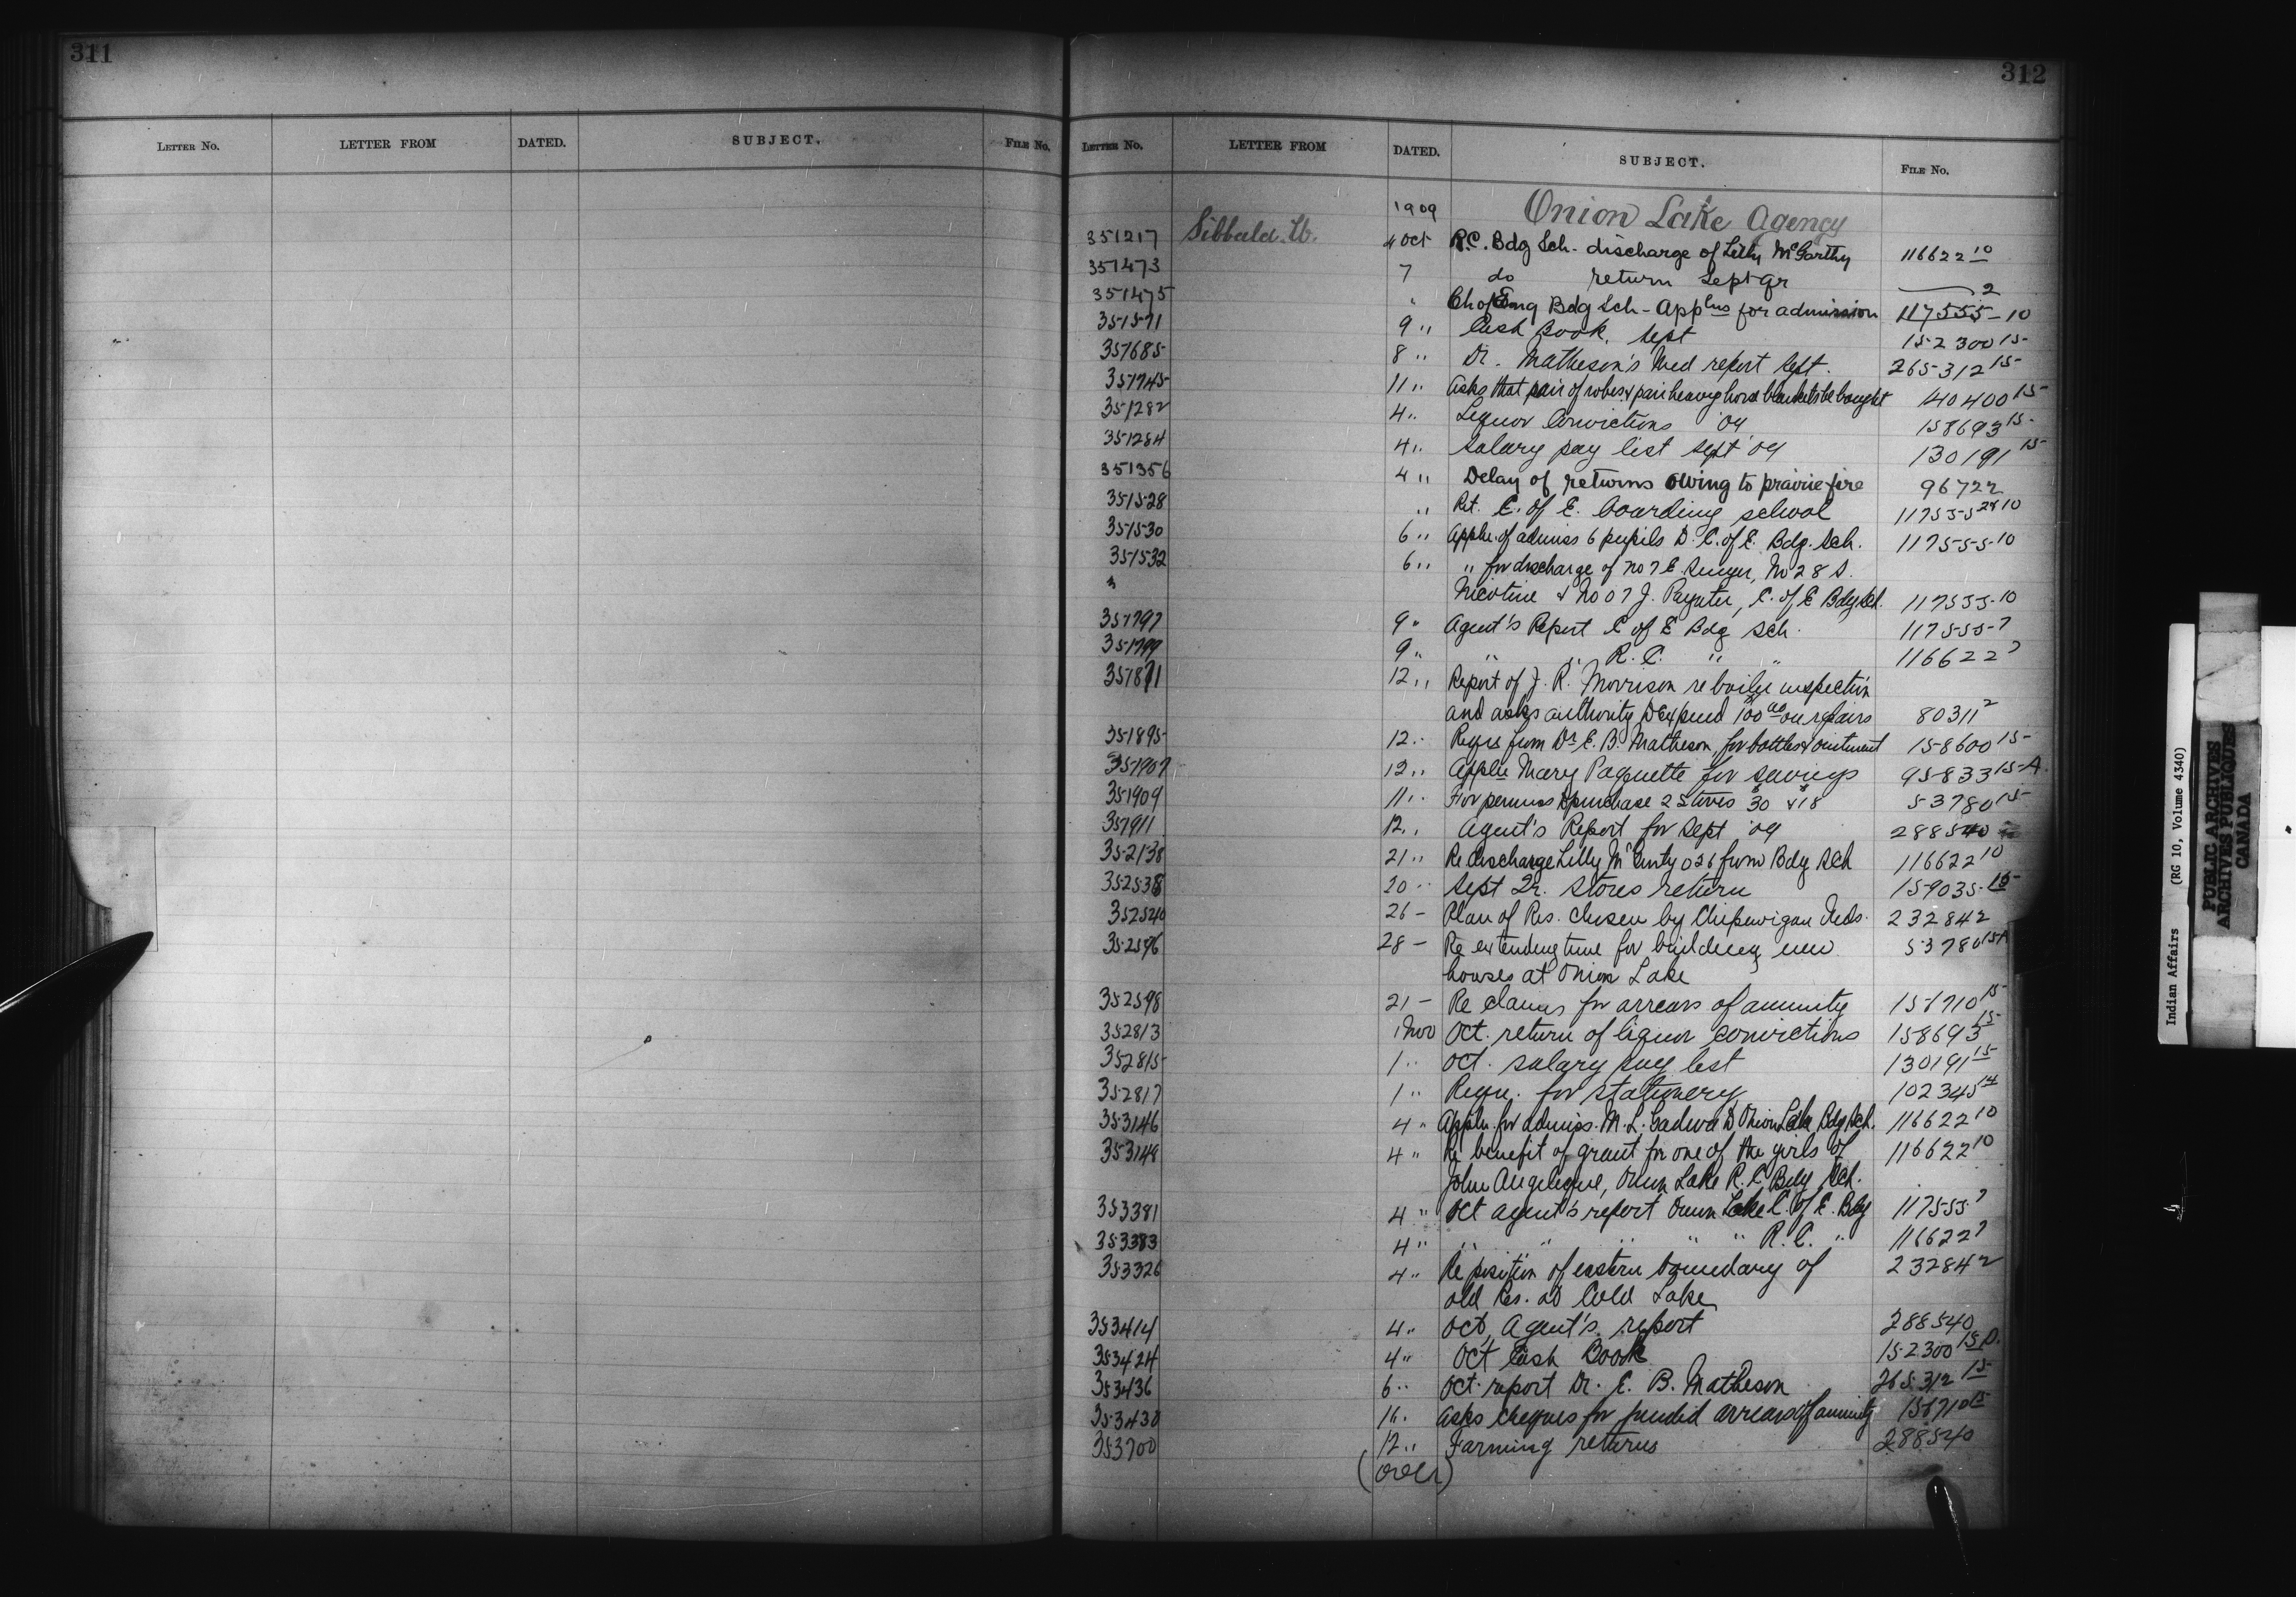 311
LETTER No. LETTER FROM DATED. SUBJECT. FILE No.
312
LETTER No. LETTER FROM DATED. SUBJECT. FILE No.
1909 Onion Lake Agency
351217 Sibbald. W. 4 Oct R.C. Bdg Sch. discharge of Lilly McCarthy 116622 10
351473 7 do return Sept qr 2
351475 " Ch of Eng Bdg Sch - Applns for admission 117555-10
351571 9 " Cash Book. Sept 152300 15
351685 8 " Dr. Matheson's Med report Sept. 265312 15
351745 11 " Asks that pair of robes & pair heavy horse blankets be bought 40400 15
351282 4 " Liquor Convictions '09 158693 15
351284 4 " Salary pay list Sept '09 130191 15
351356 4 " Delay of returns owing to prairie fire 96722
351528 " Ret. C. of E. boarding school 117555 28 10
351530 6 " Appln. of admiss 6 pupils D. C. of E. Bdg. Sch. 117555-10
351532 6 " " for discharge of No 7 E. No 28 S.
Nicotine & No 07 J. Paynter, C. of E Bdg Sch. 117555-10
351797 9 " Agent's Report C of E Bdg Sch. 117555-7
351799 9 " " " R. C. " " 116622 7
351871 12 " Report of J. R. Morrison re boiler inspection
and asks authority to expend 100 00 on repairs 80311 2
351895 12 " Requ from Dr. E. B. Matheson for bottles & ointment 158600 15
351907 12 " Appln Mary Paquette for savings 95833 15-A
351909 11 " For permiss to purchase 2 stoves $30 & $18 53780 15
351911 12 " Agent's Report for Sept '09 288540
352138 21 " Re discharge Lilly McCarty 026 from Bdg Sch 116622 10
352538 20 " Sept Qr. Stores return 159035-15
352540 26 - Plan of Res. chosen by Chipewyan Inds. 232842
352596 28 - Re extending time for building new 53780 15A
houses at Onion Lake
352598 21 - Re claims for arrears of annuity 151710 15
352813 1 Nov Oct. return of liquor convictions 158693 15
352815 1 " Oct. salary pay list 130191 15
352817 1 " Requ. for stationery 102345 14
353146 4 " Appln. for admiss. M. L. Gadwa to Onion Lake Bdg Sch. 116622 10
353148 4 " Re benefit of grant for one of the girls of 116622 10
John Angelique, Onion Lake R. C Bdg Sch.
353381 4 " Oct agent's report Onion Lake C. of E. Bdg 117555 7
353383 4 " " " " " " R. C. " 116622 7
353326 4 " Re position of eastern boundary of 232842
old Res. at Cold Lake
353414 4 " Oct. Agent's report 288540
353424 4 " Oct Cash Book 152300 15D.
353436 6 " Oct. report Dr. E. B. Matheson 265312 15
353438 16 . Asks cheques for arrears of annuity 151710 15
353700 12 " Farming returns 288540
(over)
Indian Affairs (RG 10, Volume 4340)
PUBLIC ARCHIVES
ARCHIVES PUBLIQUES
CANADA